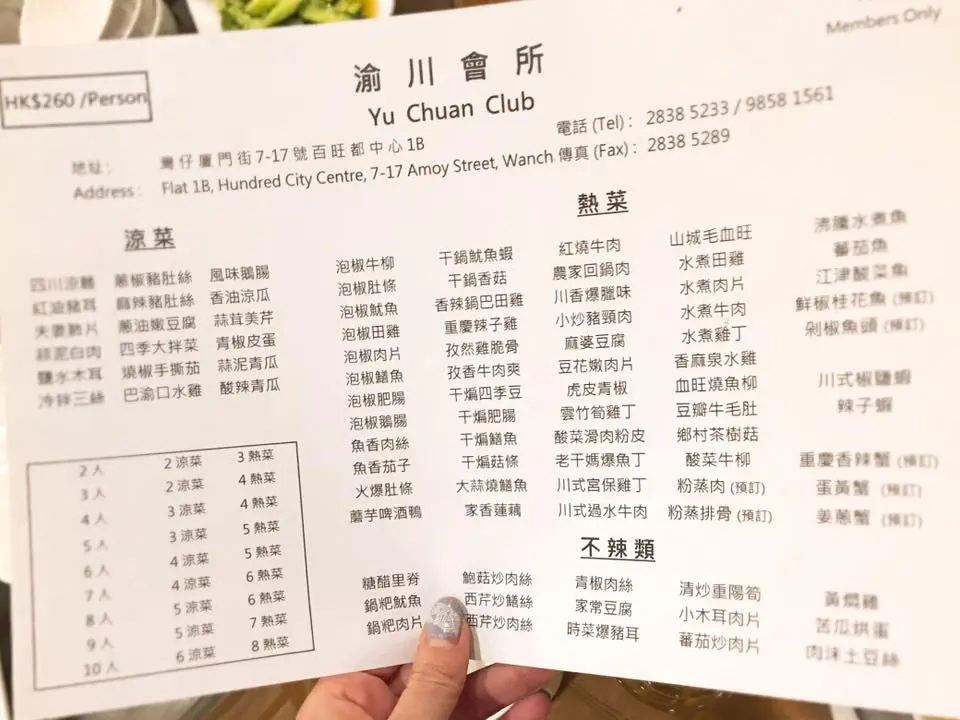 Members Only
HK$260 /Person
渝川會所
Yu Chuan Club
地址： 灣仔廈門街7-17號百旺都中心1B
電話 (Tel)： 2838 5233 / 9858 1561
Address： Flat 1B, Hundred City Centre, 7-17 Amoy Street, Wanch
傳真 (Fax)： 2838 5289
涼菜
四川涼麵 蔥椒豬肚絲 風味鵝腸
紅油豬耳 麻辣豬肚絲 香油涼瓜
夫妻肺片 蔥油嫩豆腐 蒜茸美芹
蒜泥白肉 四季大拌菜 青椒皮蛋
鹽水木耳 燒椒手撕茄 蒜泥青瓜
冷拌三絲 巴渝口水雞 酸辣青瓜
2 人 2 涼菜 3 熱菜
3 人 2 涼菜 4 熱菜
4 人 3 涼菜 4 熱菜
5 人 3 涼菜 5 熱菜
6 人 4 涼菜 5 熱菜
7 人 4 涼菜 6 熱菜
8 人 5 涼菜 6 熱菜
9 人 5 涼菜 7 熱菜
10 人 6 涼菜 8 熱菜
熱菜
泡椒牛柳 干鍋魷魚蝦 紅燒牛肉 山城毛血旺 沸騰水煮魚
泡椒肚條 干鍋香菇 農家回鍋肉 水煮田雞 蕃茄魚
泡椒魷魚 香辣鍋巴田雞 川香爆臘味 水煮肉片 江津酸菜魚
泡椒田雞 重慶辣子雞 小炒豬頸肉 水煮牛肉 鮮椒桂花魚 (預訂)
泡椒肉片 孜然雞脆骨 麻婆豆腐 水煮雞丁 剁椒魚頭 (預訂)
泡椒鱔魚 孜香牛肉爽 豆花嫩肉片 香麻泉水雞
泡椒肥腸 干煸四季豆 虎皮青椒 血旺燒魚柳 川式椒鹽蝦
泡椒鵝腸 干煸肥腸 雲竹筍雞丁 豆瓣牛毛肚 辣子蝦
魚香肉絲 干煸鱔魚 酸菜滑肉粉皮 鄉村茶樹菇
魚香茄子 干煸菇條 老干媽爆魚丁 酸菜牛柳 重慶香辣蟹 (預訂)
火爆肚條 大蒜燒鱔魚 川式宮保雞丁 粉蒸肉 (預訂) 蛋黃蟹 (預訂)
蘑芋啤酒鴨 家香蓮藕 川式過水牛肉 粉蒸排骨 (預訂) 姜蔥蟹 (預訂)
不辣類
糖醋里脊 鮑菇炒肉絲 青椒肉絲 清炒重陽筍 黃燜雞
鍋粑魷魚 西芹炒鱔絲 家常豆腐 小木耳肉片 苦瓜烘蛋
鍋粑肉片 西芹炒肉絲 時菜爆豬耳 蕃茄炒肉片 肉沫土豆絲